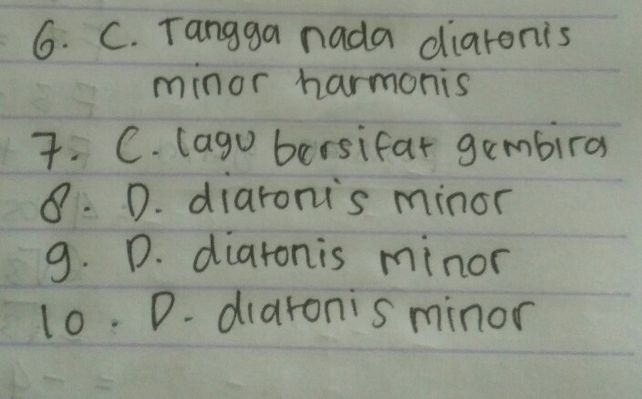 6. C. Tangga nada diatonis
minor harmonis
7. C. lagu bersifat gembira
8. D. diatonis minor
9. D. diatonis minor
10. D. diatonis minor